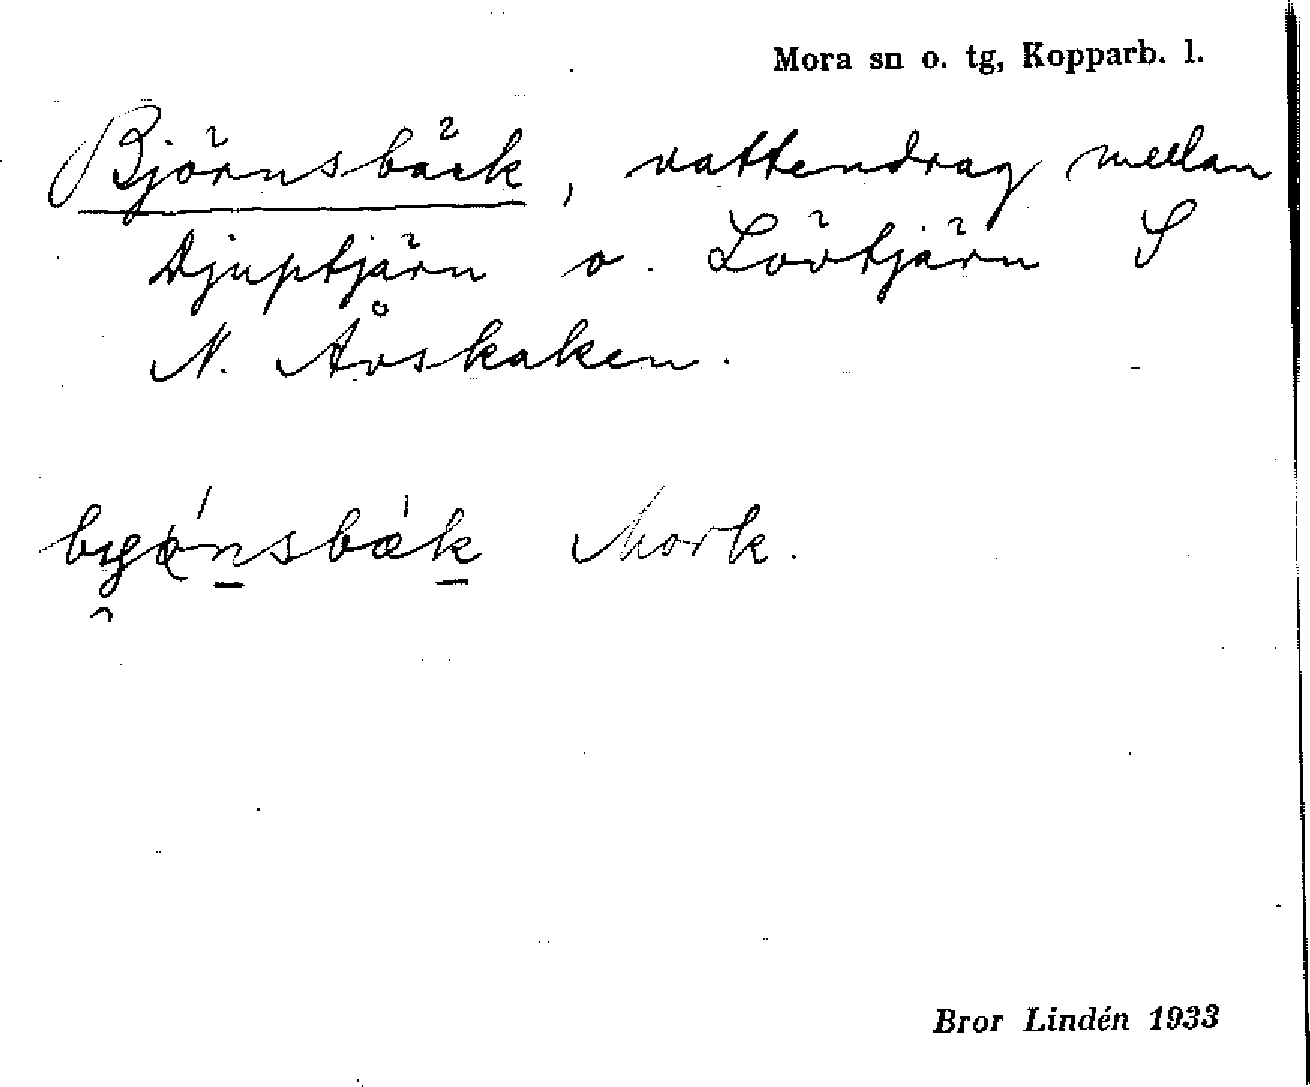 Mora sn o. tg, Kopparb. l.
Björnsbäck, vattendrag mellan
Djuptjärn o. Lövtjärn S
N. Åvskaken.
Mork.
Bror Lindén 1933